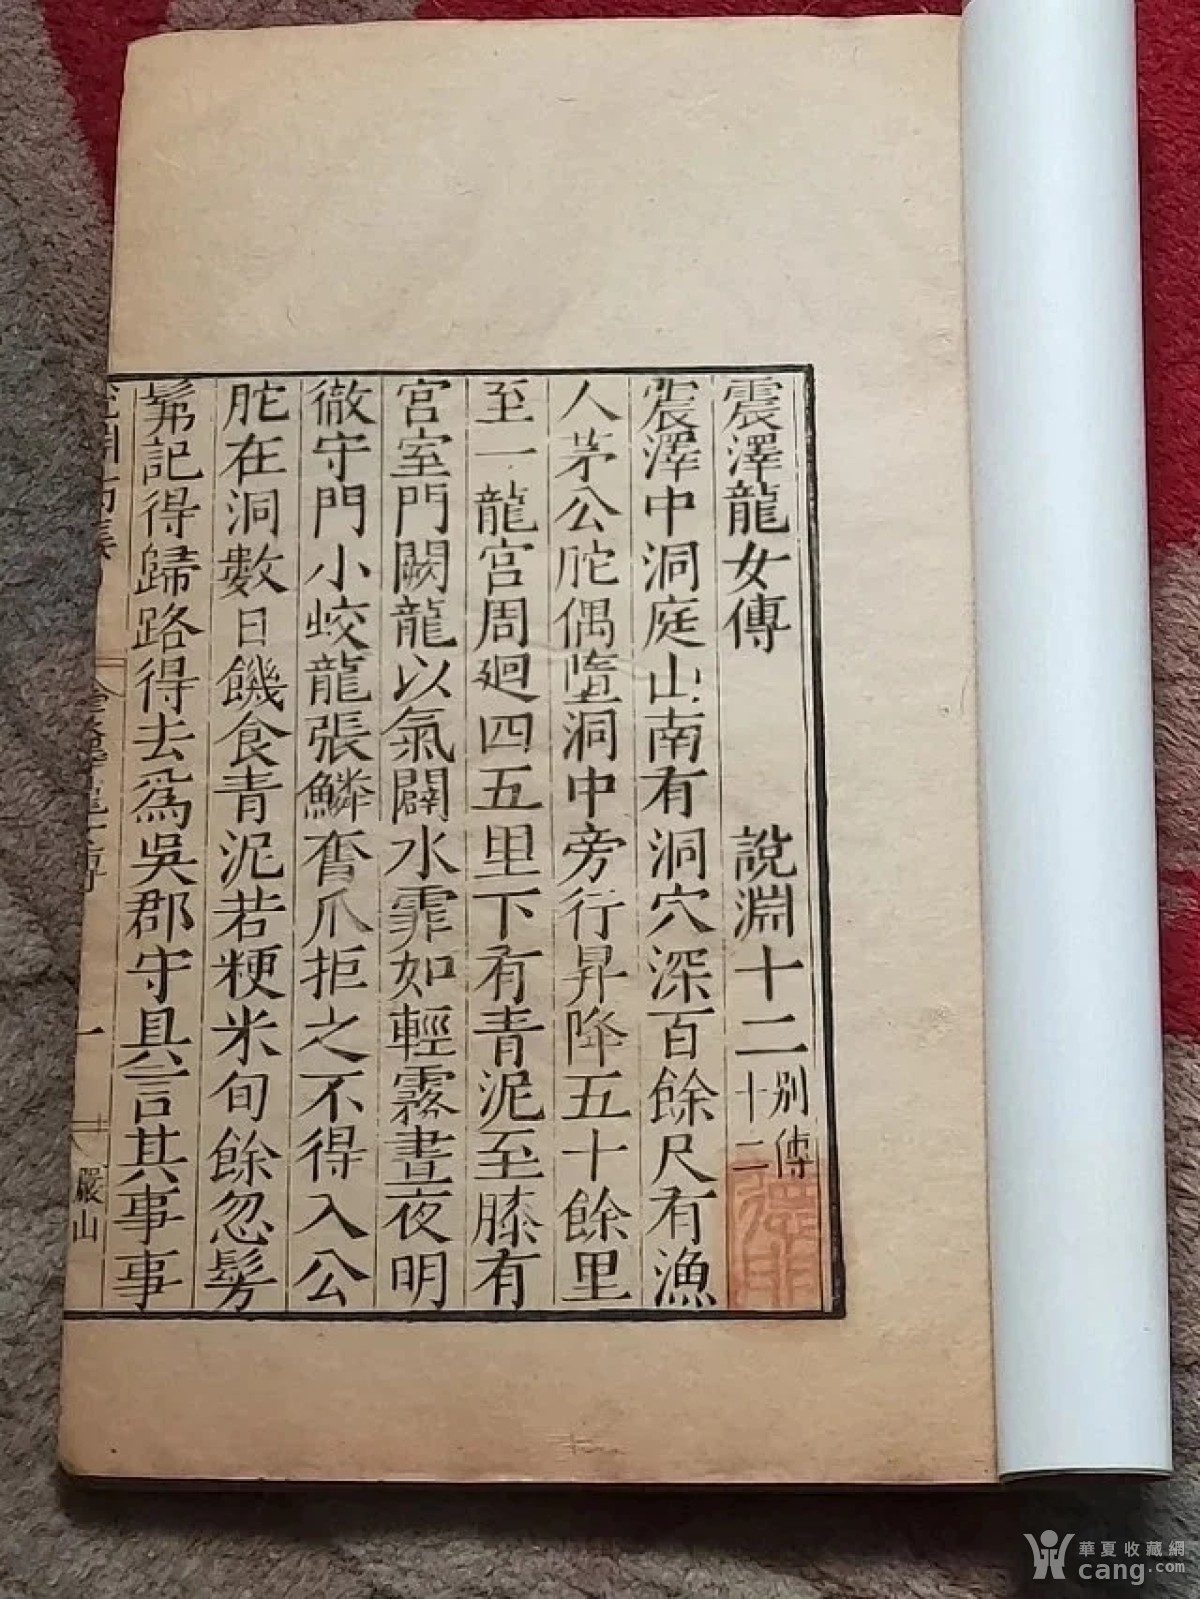 震澤龍女傳 說淵十二 別傳十二
震澤中洞庭山南有洞穴深百餘尺有漁
人茅公䑨偶墮洞中旁行昇降五十餘里
至一龍宮周廻四五里下有青泥至膝有
宮室門闕龍以氣闢水霏如輕霧晝夜明
徹守門小蛟龍張鱗奮爪拒之不得入公
䑨在洞數日饑食青泥若粳米旬餘忽髣
髴記得歸路得去爲吳郡守具言其事事
一
嚴山
華夏收藏網
cang.com